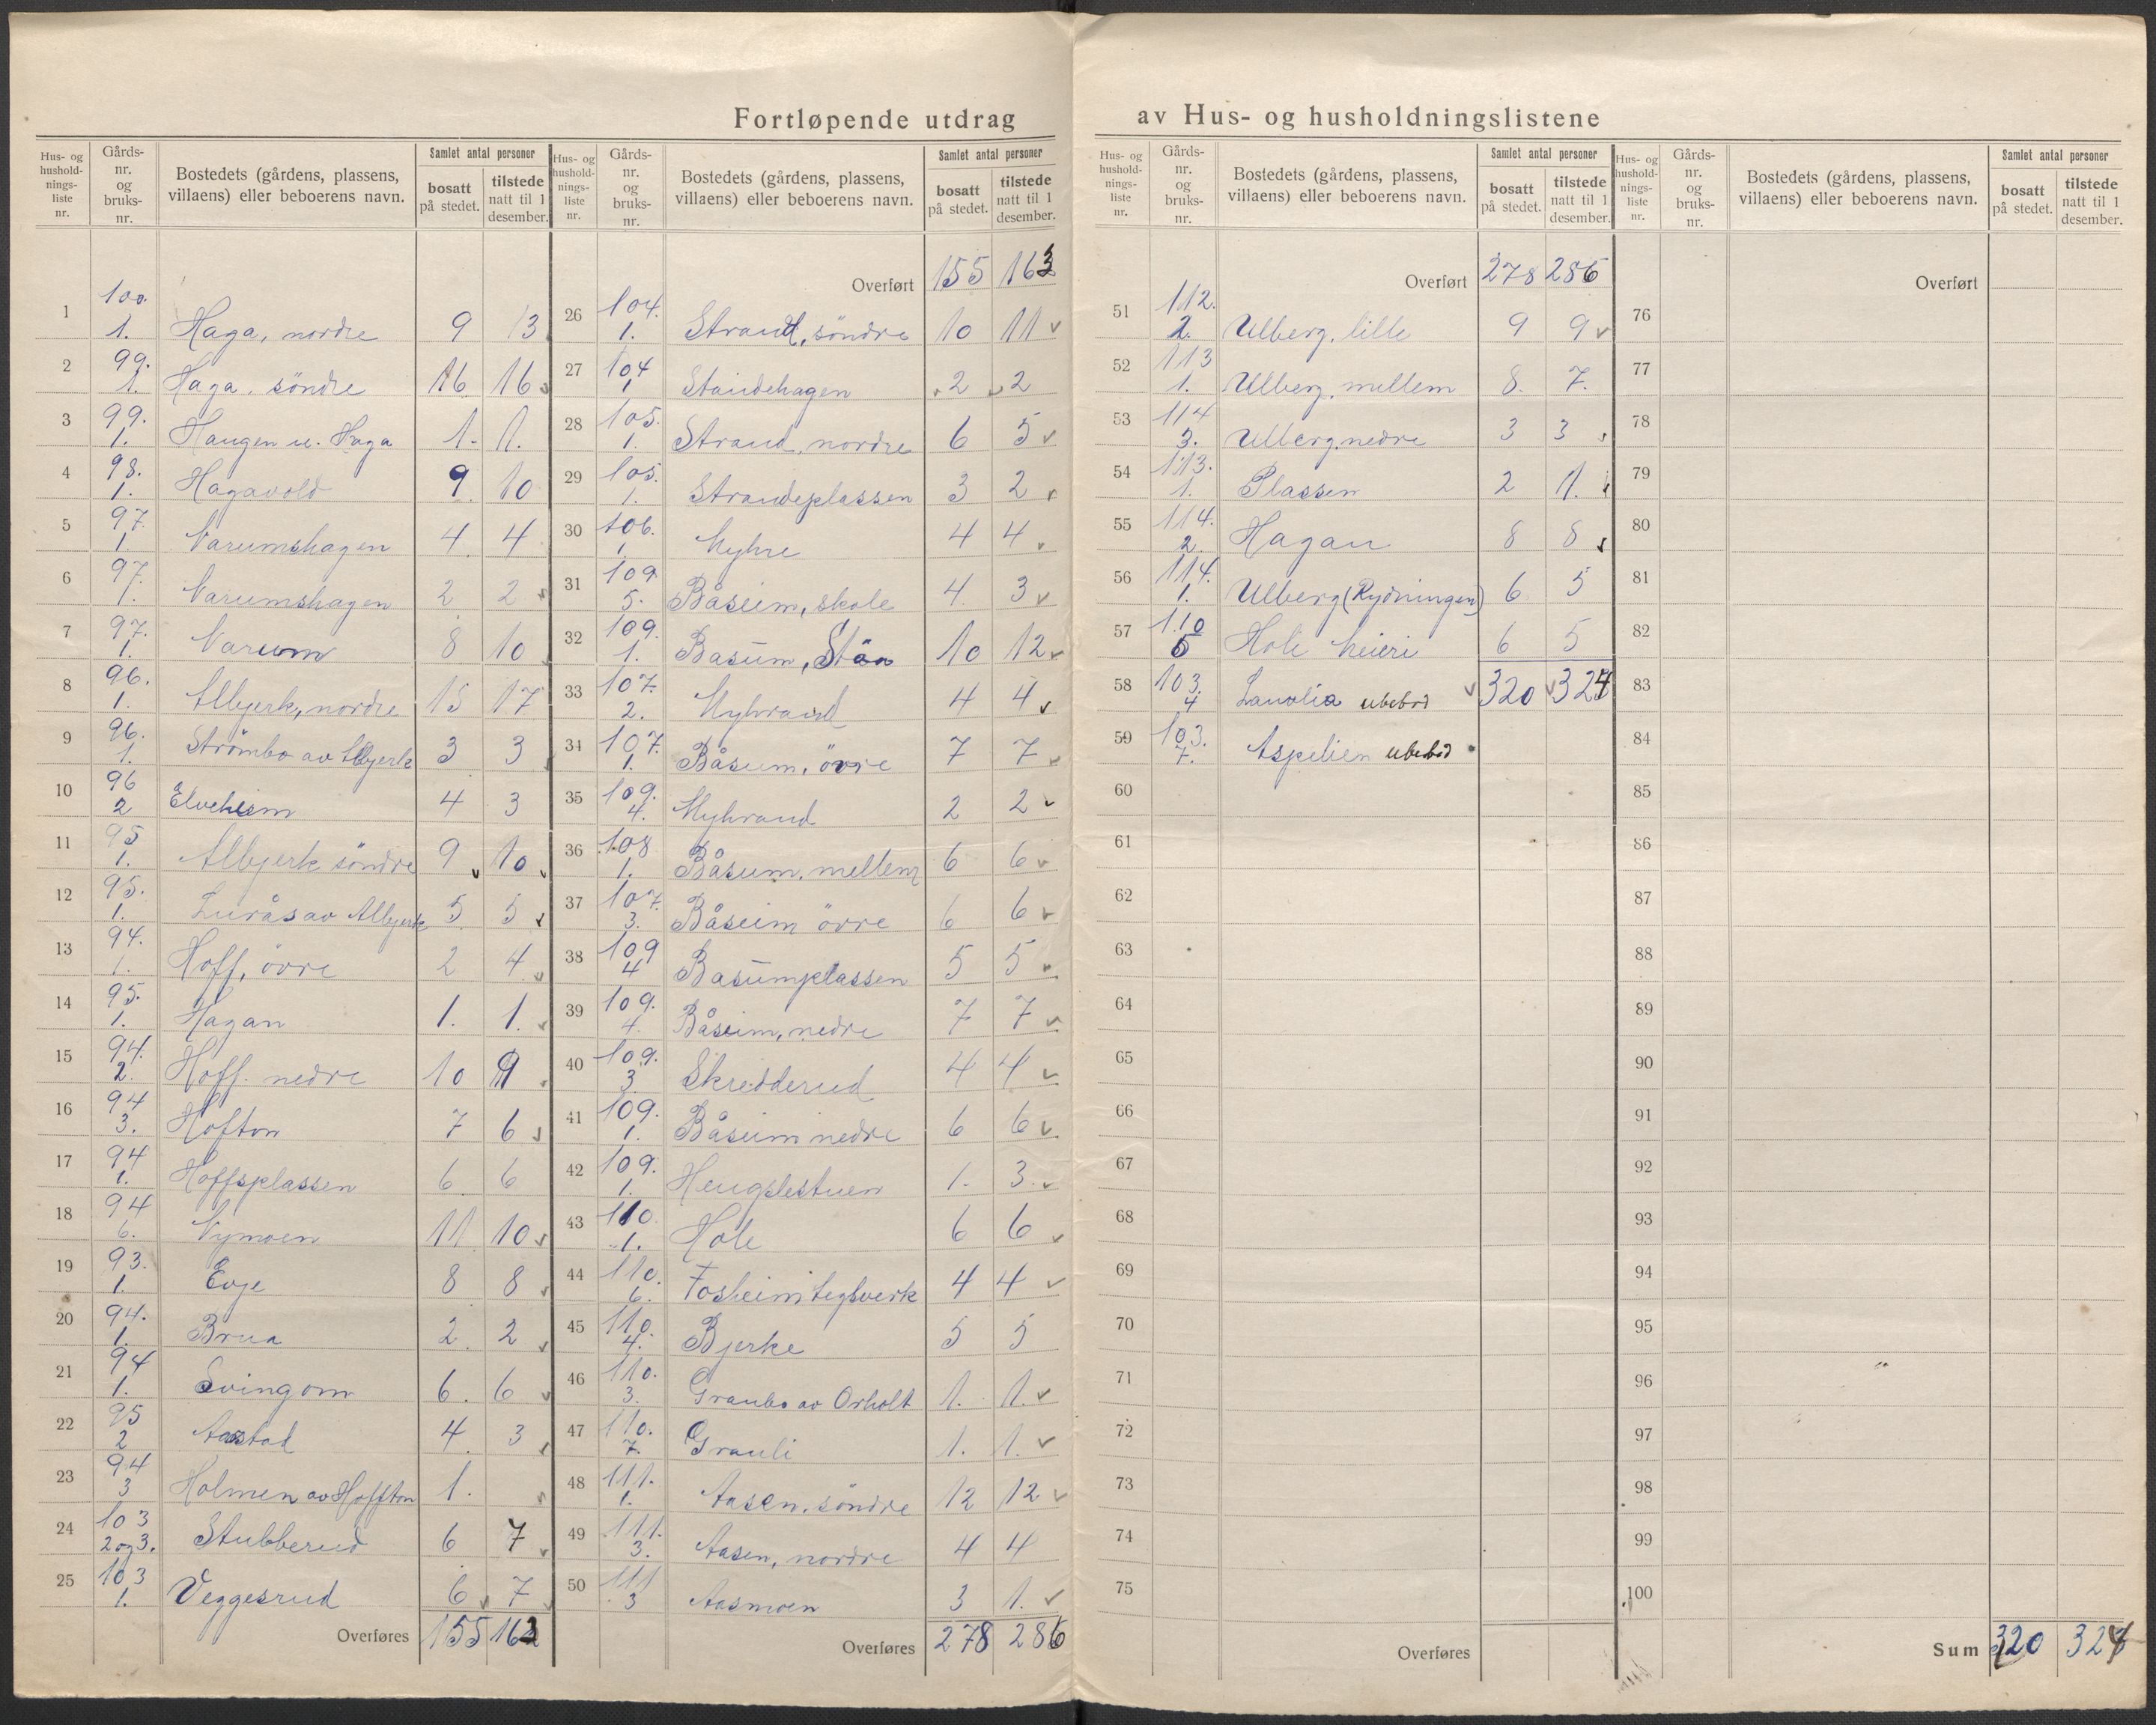 Fortløpende utdrag av Hus- og husholdningslistene
Hus- og hushold-nings-liste nr. | Gårds-nr. og bruks-nr. | Bostedets (gårdens, plassens, villaens) eller beboerens navn. | Samlet antal personer | bosatt på stedet. | tilstede natt til 1 desember.
1 | 100. 1. | Haga, nordre | 9 | 13
2 | 99. 1. | Haga, söndre | 16 | 16
3 | 99. 1. | Haugen u. Haga | 1. | 1.
4 | 98. 1. | Hagavold | 9 | 10
5 | 97. 1. | Narumshagen | 4 | 4
6 | 97. 1. | Narumshagen | 2 | 2
7 | 97. 1. | Narum | 8 | 10
8 | 96. 1. | Albjerk, nordre | 15 | 17
9 | 96. 1. | Strömbo av Albjerk | 3 | 3
10 | 96 2 | Elveheim | 4 | 3
11 | 95 1. | Albjerk söndre | 9 | 10
12 | 95. 1. | Luråsav Albjerk | 5 | 5
13 | 94. 1. | Hoff, övre | 2 | 4
14 | 95. 1. | Hagan | 1. | 1.
15 | 94. 2. | Hoff. nedre | 10 | 9
16 | 94 3. | Hofton | 7 | 6
17 | 94 1. | Hoffsplassen | 6 | 6
18 | 94 6. | Nymoen | 11 | 10
19 | 93. 1. | Evje | 8 | 8
20 | 94. 1. | Brua | 2 | 2
21 | 94 1. | Svingom | 6. | 6
22 | 95 2 | Aastad | 4 | 3
23 | 94 3 | Holmen av Hoffton | 1.
24 | 103 2 og 3. | Stubberud | 6 | 7
25 | 103 1. | Veggesrud | 6 | 7
Overføres | 155 | 163
Hus- og hushold-nings-liste nr. | Gårds-nr. og bruks-nr. | Bostedets (gårdens, plassens, villaens) eller beboerens navn. | Samlet antal personer | bosatt på stedet. | tilstede natt til 1 desember.
Overført | 155 | 163
26 | 104. 1. | Strand, söndre | 10 | 11
27 | 104 1 | Standehagen | 2 | 2
28 | 105. 1. | Strand, nordre | 6 | 5
29 | 105. 1. | Strandeplassen | 3 | 2
30 | 106. 1. | Myhre | 4 | 4
31 | 109 5. | Båsum, skole | 4 | 3
32 | 109. 1. | Basum, Stöa | 10 | 12
33 | 107. 2. | Myhrand | 4 | 4
34 | 107. 1. | Båsum, övre | 7 | 7
35 | 109. 4. | Myhrand | 2 | 2
36 | 108 1. | Båsum, mellem | 6 | 6
37 | 107. 3. | Båsum övre | 6 | 6
38 | 109 4 | Basumplassen | 5 | 5
39 | 109. 4. | Båsum, nedre | 7 | 7
40 | 109. 3. | Skredderud | 4 | 4
41 | 109. 1. | Båsum nedre | 6 | 6
42 | 109. 1. | Hengslestuen | 1. | 3.
43 | 110. 1. | Hole | 6 | 6
44 | 110. 6. | Fosheim teglverk | 4 | 4
45 | 110. 4. | Bjerke | 5 | 5
46 | 110. 3. | Graubo av Orholt | 1. | 1.
47 | 110. 7. | Grauli | 1. | 1.
48 | 111. 1. | Aasen, söndre | 12 | 12
49 | 111. 3. | Aasen, nordre | 4 | 4
50 | 111 3 | Aasmoen | 3 | 1.
Overføres | 278 | 286
Hus- og hushold-nings-liste nr. | Gårds-nr. og bruks-nr. | Bostedets (gårdens, plassens, villaens) eller beboerens navn. | Samlet antal personer | bosatt på stedet. | tilstede natt til 1 desember.
Overført | 278 | 286
51 | 112. 2. | Ulberg, lille | 9 | 9
52 | 113 1. | Ulberg, mellem | 8. | 7.
53 | 114 3. | Ulberg, nedre | 3 | 3
54 | 113. 1. | Plassen | 2 | 1.
55 | 114. 2. | Hagan | 8 | 8
56 | 114. 1. | Ulberg (Rydningen) | 6 | 5
57 | 110 5 | Hole meieri | 6 | 5
58 | 103. 4 | Lanolia ubebod | 320 | 324
59 | 103. 7. | Aspelien ubebod
60
61
62
63
64
65
66
67
68
69
70
71
72
73
74
75
Overføres
Hus- og hushold-nings-liste nr. | Gårds-nr. og bruks-nr. | Bostedets (gårdens, plassens, villaens) eller beboerens navn. | Samlet antal personer | bosatt på stedet. | tilstede natt til 1 desember.
Overført
76
77
78
79
80
81
82
83
84
85
86
87
88
89
90
91
92
93
94
95
96
97
98
99
100
Sum | 320 | 324